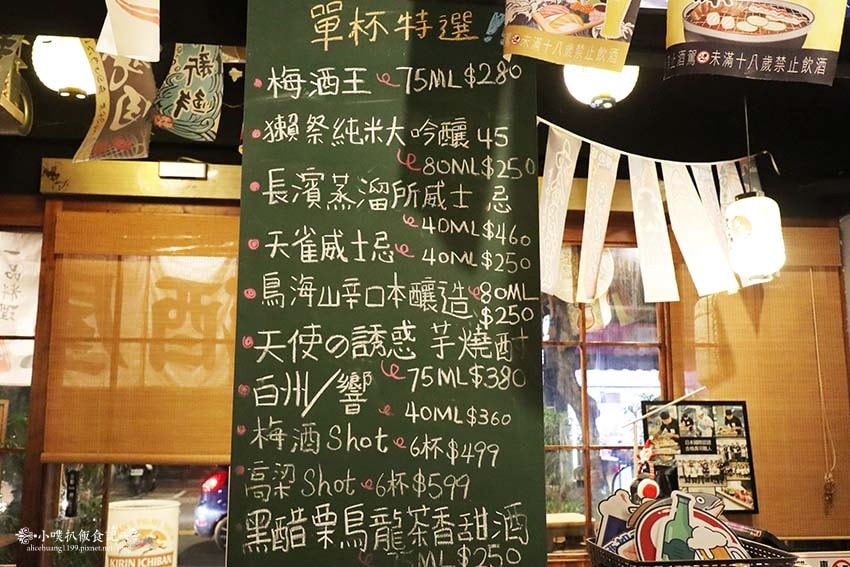 單杯特選!!
梅酒王 75ML$280
獺祭純米大吟釀45
80ML$250
長濱蒸溜所威士忌
40ML$460
天雀威士忌 40ML$250
鳥海山辛口本釀造 80ML
$250
天使の誘惑 芋燒酎
75ML$380
白州/響
40ML$360
梅酒Shot 6杯$499
高梁Shot 6杯$599
黑醋栗烏龍茶香甜酒
ML$250
未滿十八歲禁止飲酒
未滿十八歲禁止飲酒
KIRIN
新鮮
一品料理
酒
KIRIN ICHIBAN
小噗扒飯食記
alicehuang1199.pixnet.net